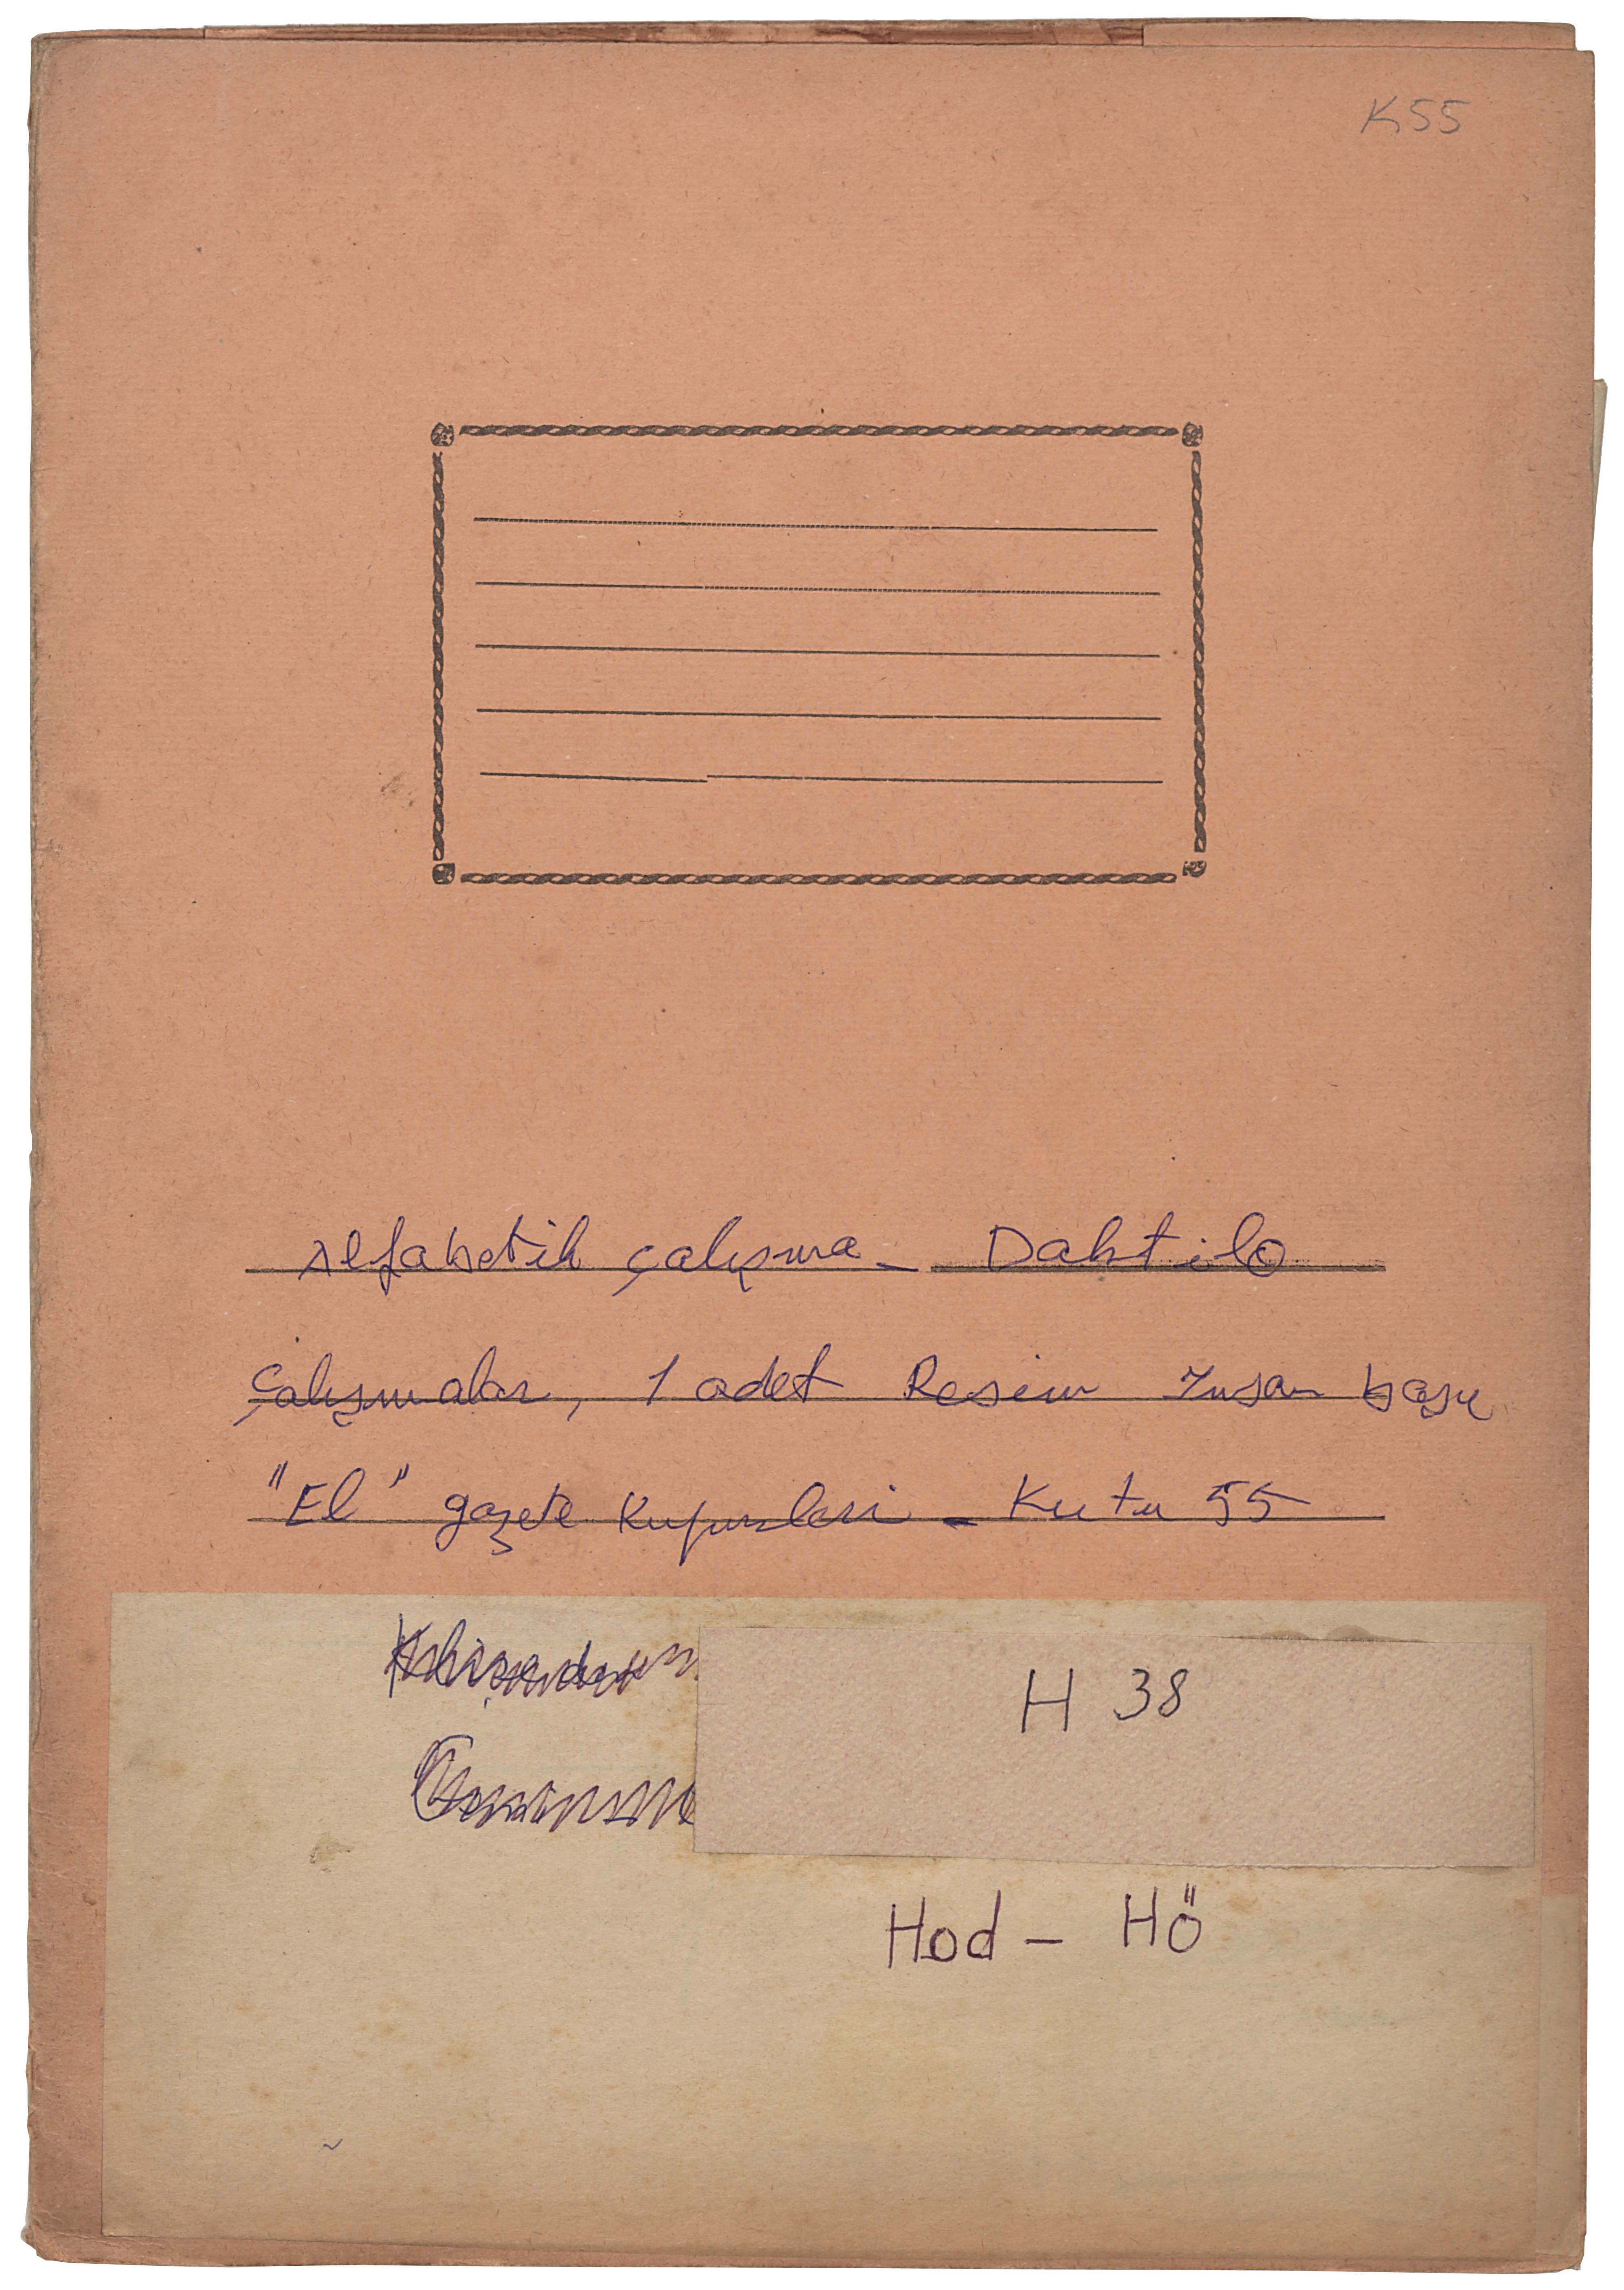 K55
Alfabetik çalışma - Daktilo
Çalışmalar, 1 adet Resim İnsan başı
"El" gazete Kupürleri - Kutu 55
H 38
Hod - Hö